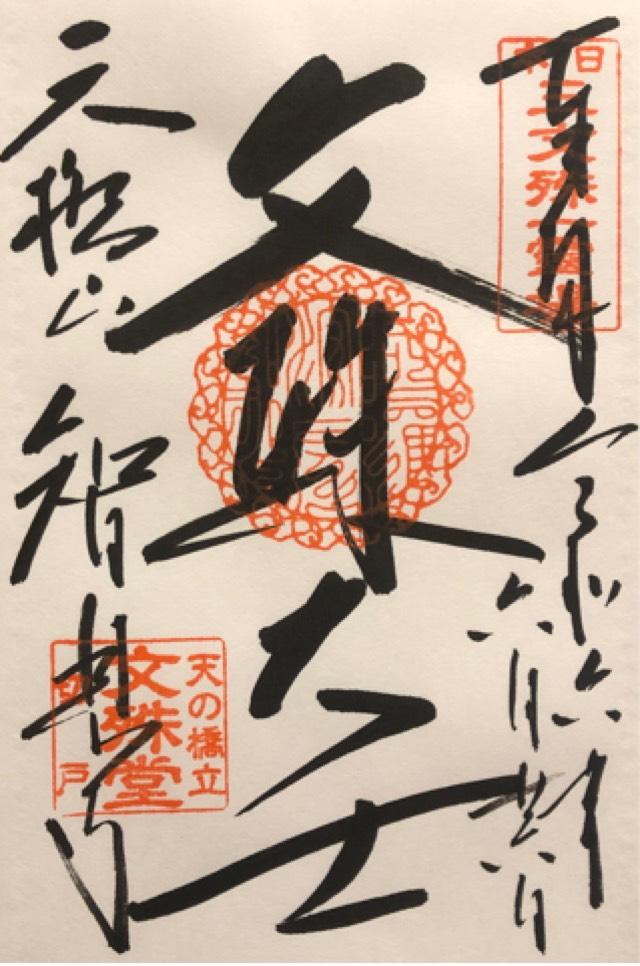 奉拝
日本
三文殊一霊場
令和六年
六月
文殊大士
天橋山 智恩寺
天の橋立
文殊堂